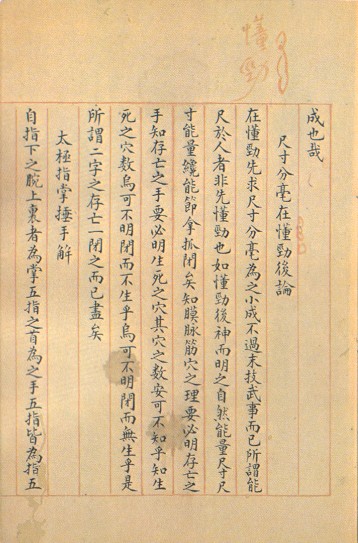 懂勁
成也哉
尺寸分毫在懂勁後論
在懂勁先求尺寸分毫為之小成不過末技武事而已所謂能
尺於人者非先懂勁也如懂勁後神而明之自然能量尺寸尺
寸能量纔能節拿抓閉矣知膜脉筋穴之理要必明存亡之
手知存亡之手要必明生死之穴其穴之數安可不知乎知生
死之穴數烏可不明閉而不生乎烏可不明閉而無生乎是
所謂二字之存亡一閉之而已盡矣
太極指掌捶手解
自指下之腕上裏者為掌五指之首為之手五指皆為指五